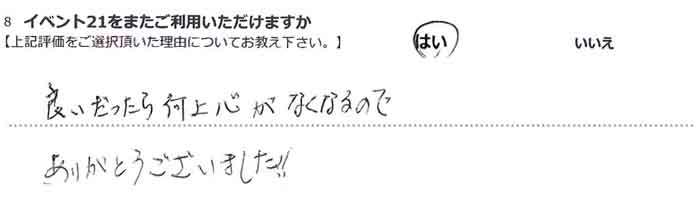 8 イベント21をまたご利用いただけますか
【上記評価をご選択頂いた理由についてお教え下さい。】 はい いいえ
良いだったら何上心がなくなるので
ありがとうございました!!